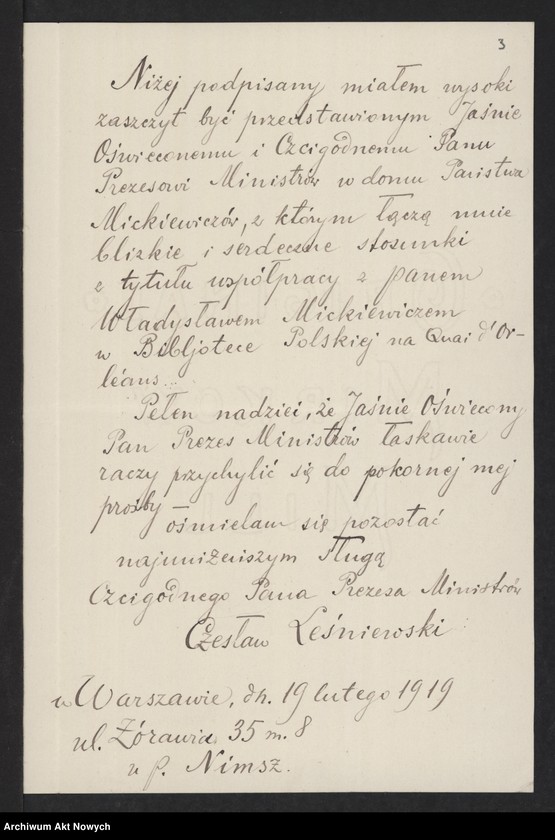 3
Niżej podpisany miałem wysoki
zaszczyt być przedstawionym Jaśnie
Oświeconemu i Czcigodnemu Panu
Prezesowi Ministrów w domu Państwa
Mickiewiczów, z którym łączą mnie
blizkie i serdeczne stosunki
z tytułu współpracy z panem
Władysławem Mickiewiczem
w Bibljotece Polskiej na Quai d'Or-
léans...
Pełen nadziei, że Jaśnie Oświecony
Pan Prezes Ministrów łaskawie
raczy przychylić się do pokornej mej
prośby — ośmielam się pozostać
najuniżeńszym sługą
Czcigodnego Pana Prezesa Ministrów
Czesław Leśniewski
w Warszawie, dn. 19 lutego 1919
ul. Żórawia 35 m. 8
u p. Nimsz.
Archiwum Akt Nowych